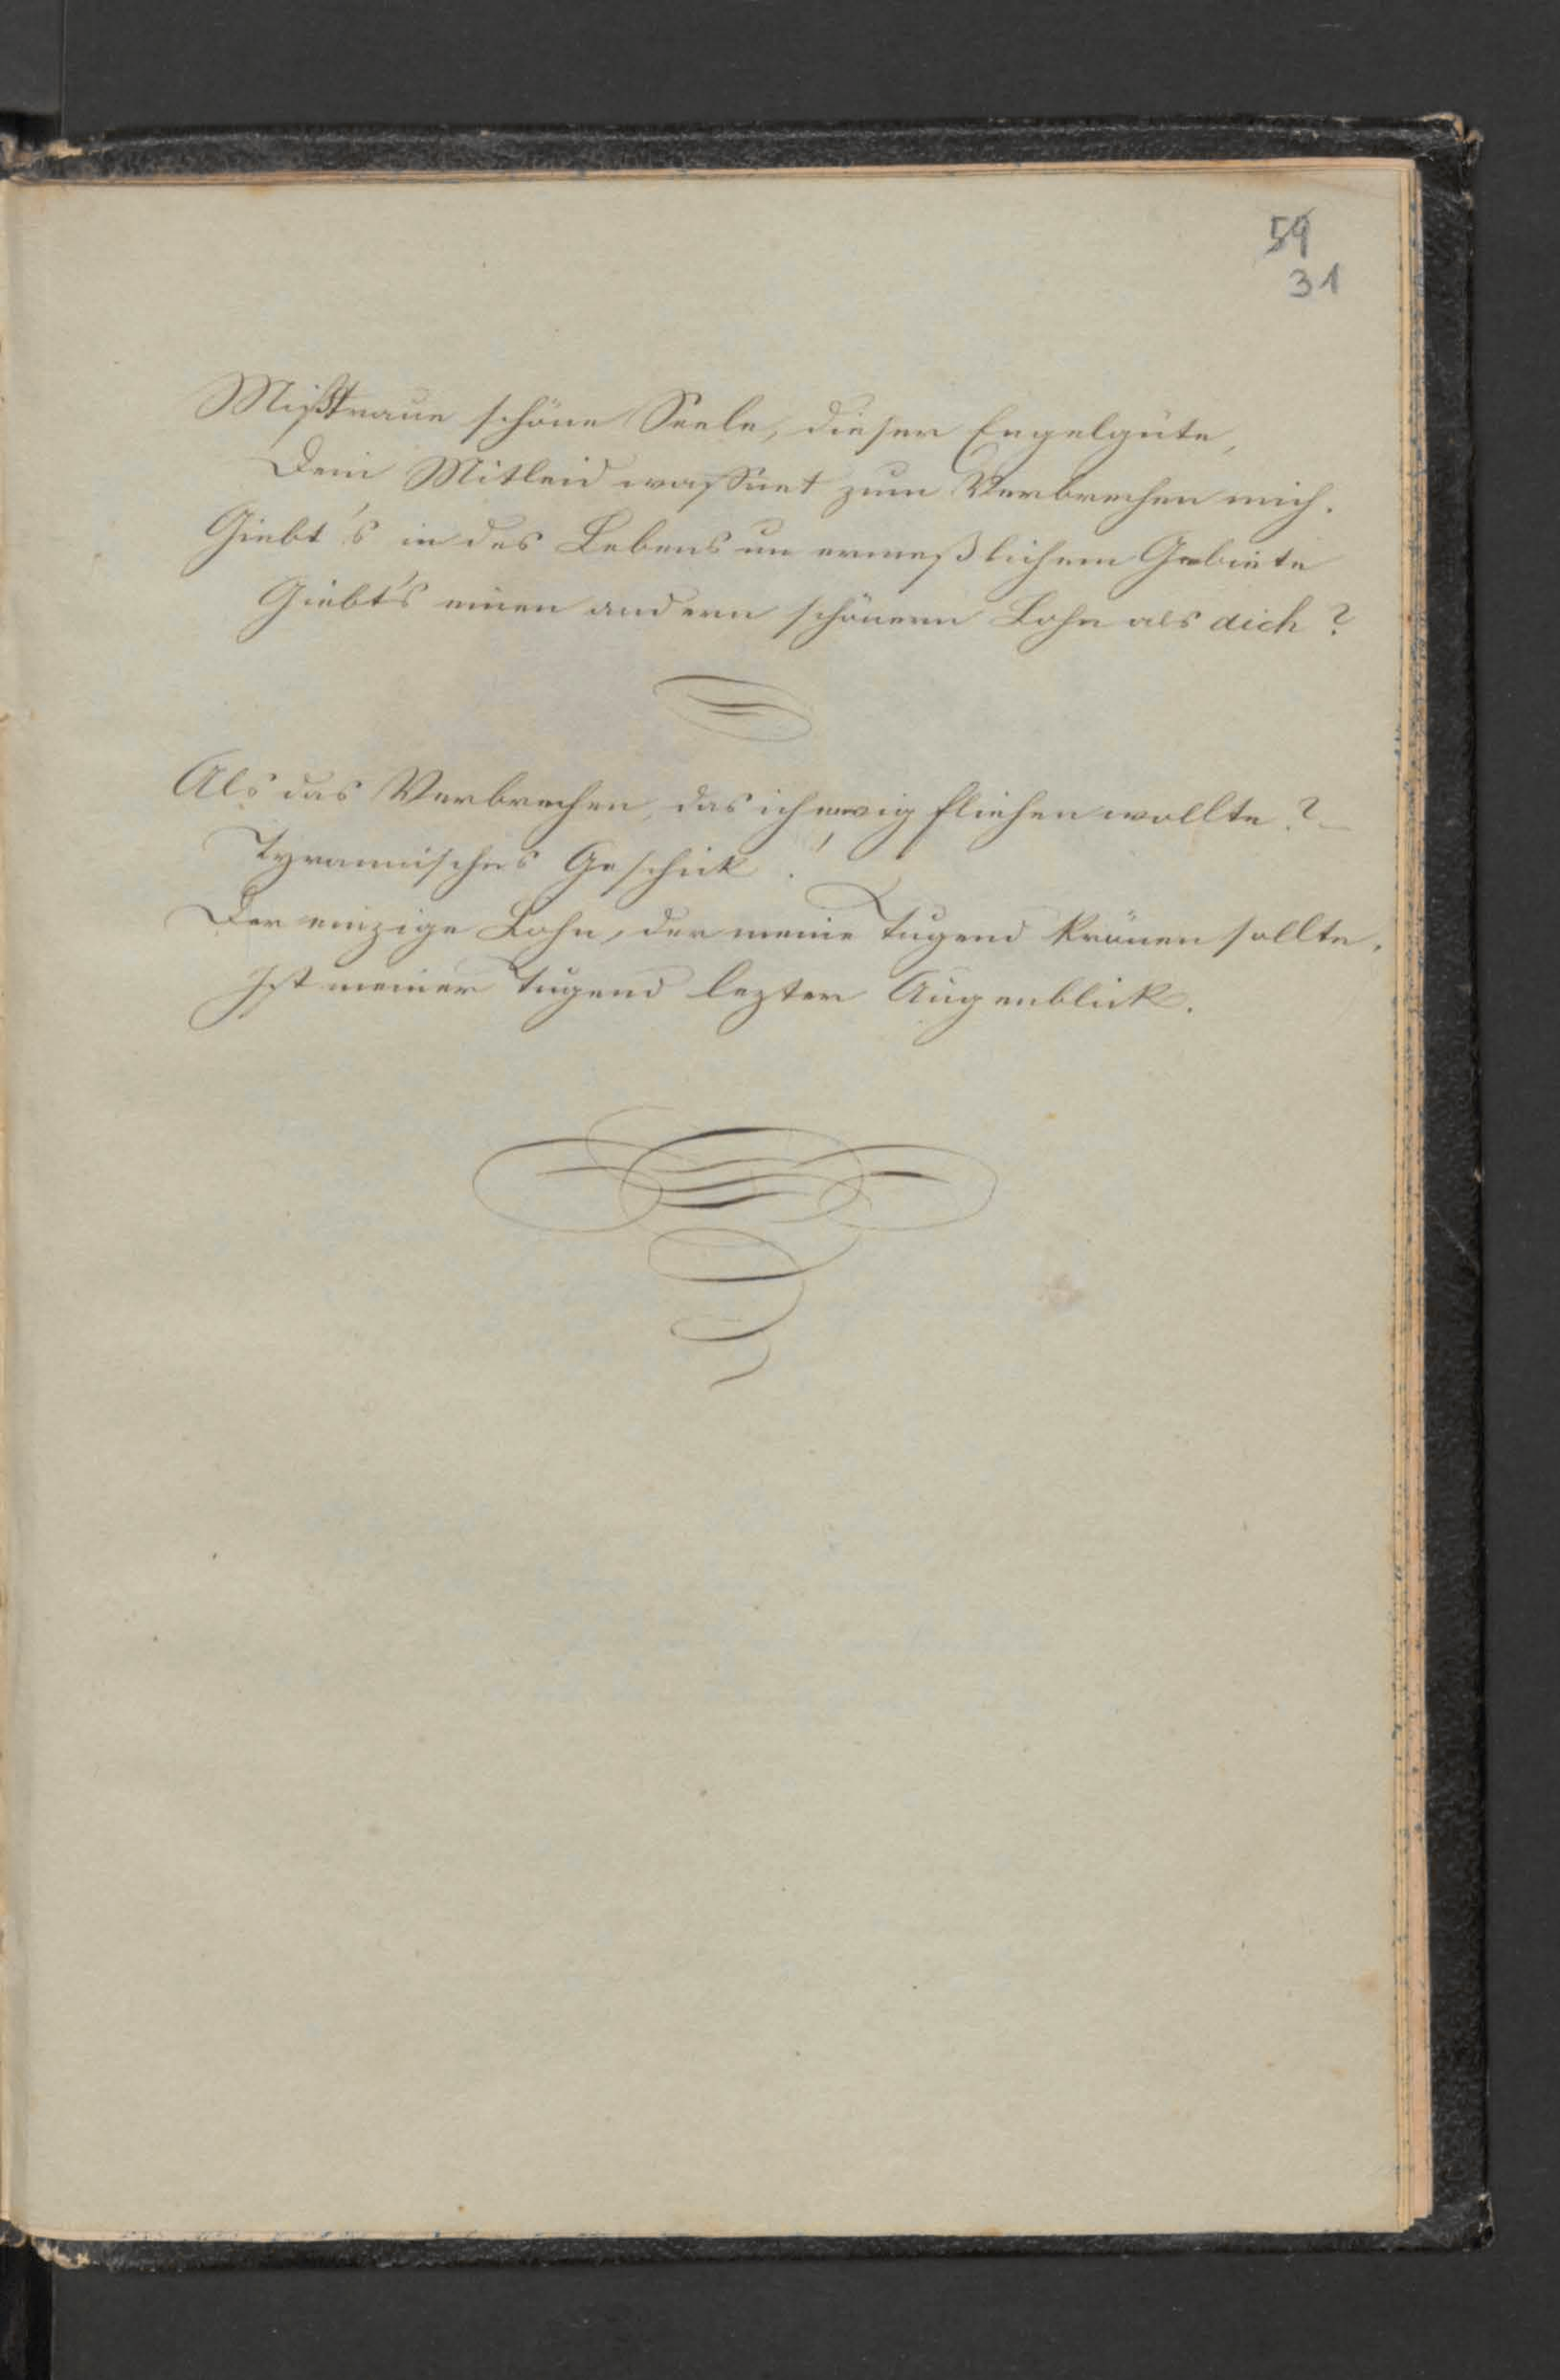 59
31
Mißtraue schöne Seele, dieser Engelgüte,
Dein Mitleid waffnet zum Verbrechen mich.
Giebt's in des Lebens unermeßlichem Gebiete
Giebt's einen andern schönern Lohn als dich?
Als das Verbrechen, das ich ewig fliehen wollte? –
Tyrannisches Geschick!
Der einzige Lohn, der meine Tugend krönen sollte,
Ist meiner Tugend lezter Augenblick.